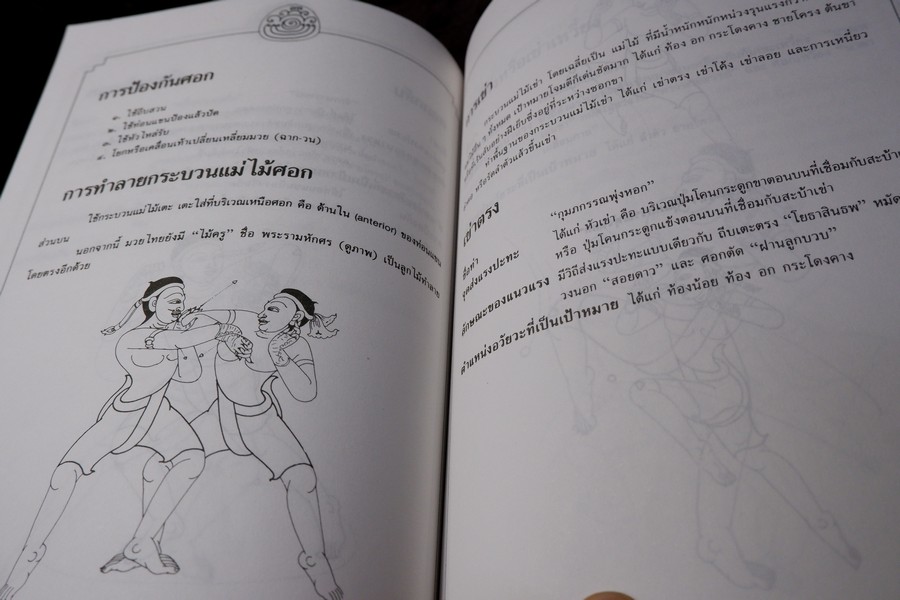 การป้องกันศอก
๑. ใช้ยืนสวน
๒. ใช้ท่อนแขนป้องแล้วปัด
๓. ใช้หัวไหล่รับ
๔. โยกหรือเคลื่อนเท้าเปลี่ยนเหลี่ยมมวย (ฉาก-วน)
การทำลายกระบวนแม่ไม้ศอก
ใช้กระบวนแม่ไม้เตะ เตะใส่ที่บริเวณเหนือศอก คือ ด้านใน (anterior) ของท่อนแขน
ส่วนบน
นอกจากนี้ มวยไทยยังมี “ไม้ครู” ชื่อ พระรามหักศร (ดูภาพ) เป็นลูกไม้ทำลาย
โดยตรงอีกด้วย
การเข่า
กระบวนแม่ไม้เข่า โดยเฉลี่ยเป็น แม่ไม้ ที่มีน้ำหนักหนักหน่วงรุนแรงกว่า
ทั้งหมด เป้าหมายโจมตีก็เด่นชัดมาก ได้แก่ ท้อง อก กระโดงคาง ชายโครง ต้นขา
ซึ่งอยู่ที่ระหว่างซอกขา
ท่าพื้นฐานของกระบวนแม่ไม้เข่า ได้แก่ เข่าตรง เข่าโค้ง เข่าลอย และการเหนี่ยว
หรือรัดลำตัวแล้วขึ้นเข่า
เข่าตรง
ชื่อท่า “กุมภกรรณพุ่งหอก”
จุดส่งแรงปะทะ ได้แก่ หัวเข่า คือ บริเวณปุ่มโคนกระดูกขาตอนบนที่เชื่อมกับสะบ้าเ
หรือ ปุ่มโคนกระดูกแข้งตอนบนที่เชื่อมกับสะบ้าเข่า
ลักษณะของแนวแรง มีวิถีส่งแรงปะทะแบบเดียวกับ ถีบเตะตรง “โยธาสินธพ” หมัด
วงนอก “สอยดาว” และ ศอกตัด “ฝานลูกบวบ”
ตำแหน่งอวัยวะที่เป็นเป้าหมาย ได้แก่ ท้องน้อย ท้อง อก กระโดงคาง